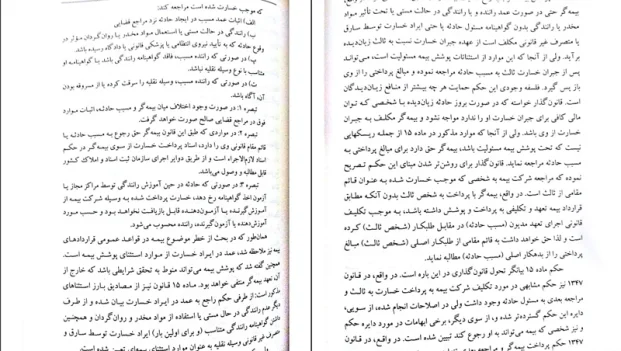 که موجب خسارت شده است مراجعه کند:
الف) اثبات عمد مسبب در ایجاد حادثه نزد مراجع قضایی
ب) رانندگی در حالت مستی یا استعمال مواد مخدر یا روان‌گردان مؤثر در
وقوع حادثه که به تأیید نیروی انتظامی یا پزشکی قانونی یا دادگاه رسیده باشد.
پ) در صورتی که راننده مسبب، فاقد گواهینامه رانندگی باشد یا گواهینامه او
متناسب با نوع وسیله نقلیه نباشد.
ت) در صورتی که راننده مسبب، وسیله نقلیه را سرقت کرده یا از مسروقه بودن
آن، آگاه باشد.
تبصره ۱: در صورت وجود اختلاف میان بیمه‌گر و مسبب حادثه، اثبات موارد
فوق در مراجع قضایی صالح صورت خواهد گرفت.
تبصره ۲: در مواردی که طبق این قانون بیمه‌گر حق رجوع به مسبب حادثه یا
قائم مقام قانونی وی را دارد، اسناد پرداخت خسارت از سوی بیمه‌گر در حکم
اسناد لازم‌الاجراء است و از طریق دوایر اجرای سازمان ثبت اسناد و املاک کشور
قابل مطالبه و وصول می‌باشد.
تبصره ۳: در صورتی که حادثه در حین آموزش رانندگی توسط مراکز مجاز یا
آزمون اخذ گواهینامه رخ دهد، خسارت پرداخت شده به وسیله شرکت بیمه از
آموزش‌گیرنده یا آزمون‌دهنده قابل بازیافت نخواهد بود و حسب مورد
آموزش‌دهنده یا آزمون‌گیرنده، راننده محسوب می‌شود.
همان‌طور که در بحث از خطر موضوع بیمه در قواعد عمومی قراردادهای
بیمه نیز ملاحظه شد، عمد در ایراد خسارت از موارد استثنای پوشش بیمه است.
همچنین گفته شد که پوشش بیمه می‌تواند منوط به تحقق شرایطی باشد که خارج از
آن تعهد بیمه‌گر منتفی خواهد بود. ماده ۱۵ قانون نیز از مصادیق بارز استثناهای
مذکور است؛ از طرفی حکم راجع به عمد در ایراد خسارت بیان شده و از طرف
دیگر عدم رانندگی در حال مستی یا استفاده از مواد مخدر و روان‌گردان و همچنین
داشتن گواهینامه رانندگی متناسب (و برای اولین بار) ایراد خسارت توسط سارق و
بیمه‌گر حتی در صورت عمد راننده و یا رانندگی در حالت مستی یا تحت تأثیر مواد
مخدر یا رانندگی بدون گواهینامه مسئول حادثه یا حتی ایراد خسارت توسط سارق
یا متصرف غیر قانونی مکلف است از عهده جبران خسارت نسبت به ثالث زیان‌دیده
برآید. ولی از آنجا که این موارد از استثنائات پوشش بیمه مسئولیت است، می‌تواند
پس از جبران خسارت ثالث به مسبب حادثه مراجعه نموده و مبالغ پرداختی را از وی
باز پس گیرد. فلسفه وجودی این حکم حمایت هر چه بیشتر از منافع زیان‌دیدگان
است. قانون‌گذار خواسته که در صورت بروز حادثه زیان‌دیده با شخصی که توان
مالی کافی برای جبران خسارت او را ندارد مواجه نشود و بیمه‌گر مکلف به جبران
خسارت از وی باشد. ولی از آنجا که موارد مذکور در ماده ۱۵ از جمله ریسکهایی
نیست که تحت پوشش بیمه مسئولیت باشد، بیمه‌گر حق دارد برای مبالغ پرداختی به
مسبب حادثه مراجعه نماید. قانون‌گذار برای روشن‌تر شدن مبنای این حکم تصریح
نموده که مراجعه شرکت بیمه به شخصی که موجب خسارت شده به عنوان قائم
مقامی از ثالث است. در واقع، بیمه‌گر با پرداخت به شخص ثالث بدون آنکه مطابق
قرارداد بیمه تعهد و تکلیفی به پرداخت و پوشش داشته باشد، به موجب تکلیف
قانونی اجرای تعهد مدیون (مسبب حادثه) در مقابل طلبکار (شخص ثالث) کرده
است و لذا حق خواهد داشت به قائم مقامی از طلبکار اصلی (شخص ثالث) مبالغ
پرداختی را از بدهکار اصلی (مسبب حادثه) مطالبه نماید.
حکم ماده ۱۵ بیانگر تحول قانون‌گذاری در این باره است. در واقع، در قانون
۱۳۴۷ نیز حکم مشابهی در مورد تکلیف شرکت بیمه به پرداخت خسارت به ثالث و
مراجعه بعدی به مسئول حادثه وجود داشت ولی در اصلاحات انجام شده، از سویی
دایره این حکم گسترده‌تر شده، و از سوی دیگر، برخی ابهامات در مورد دایره حکم
و نیز شخصی که بیمه می‌تواند به او رجوع کند تبیین شده است. در واقع، در قانون